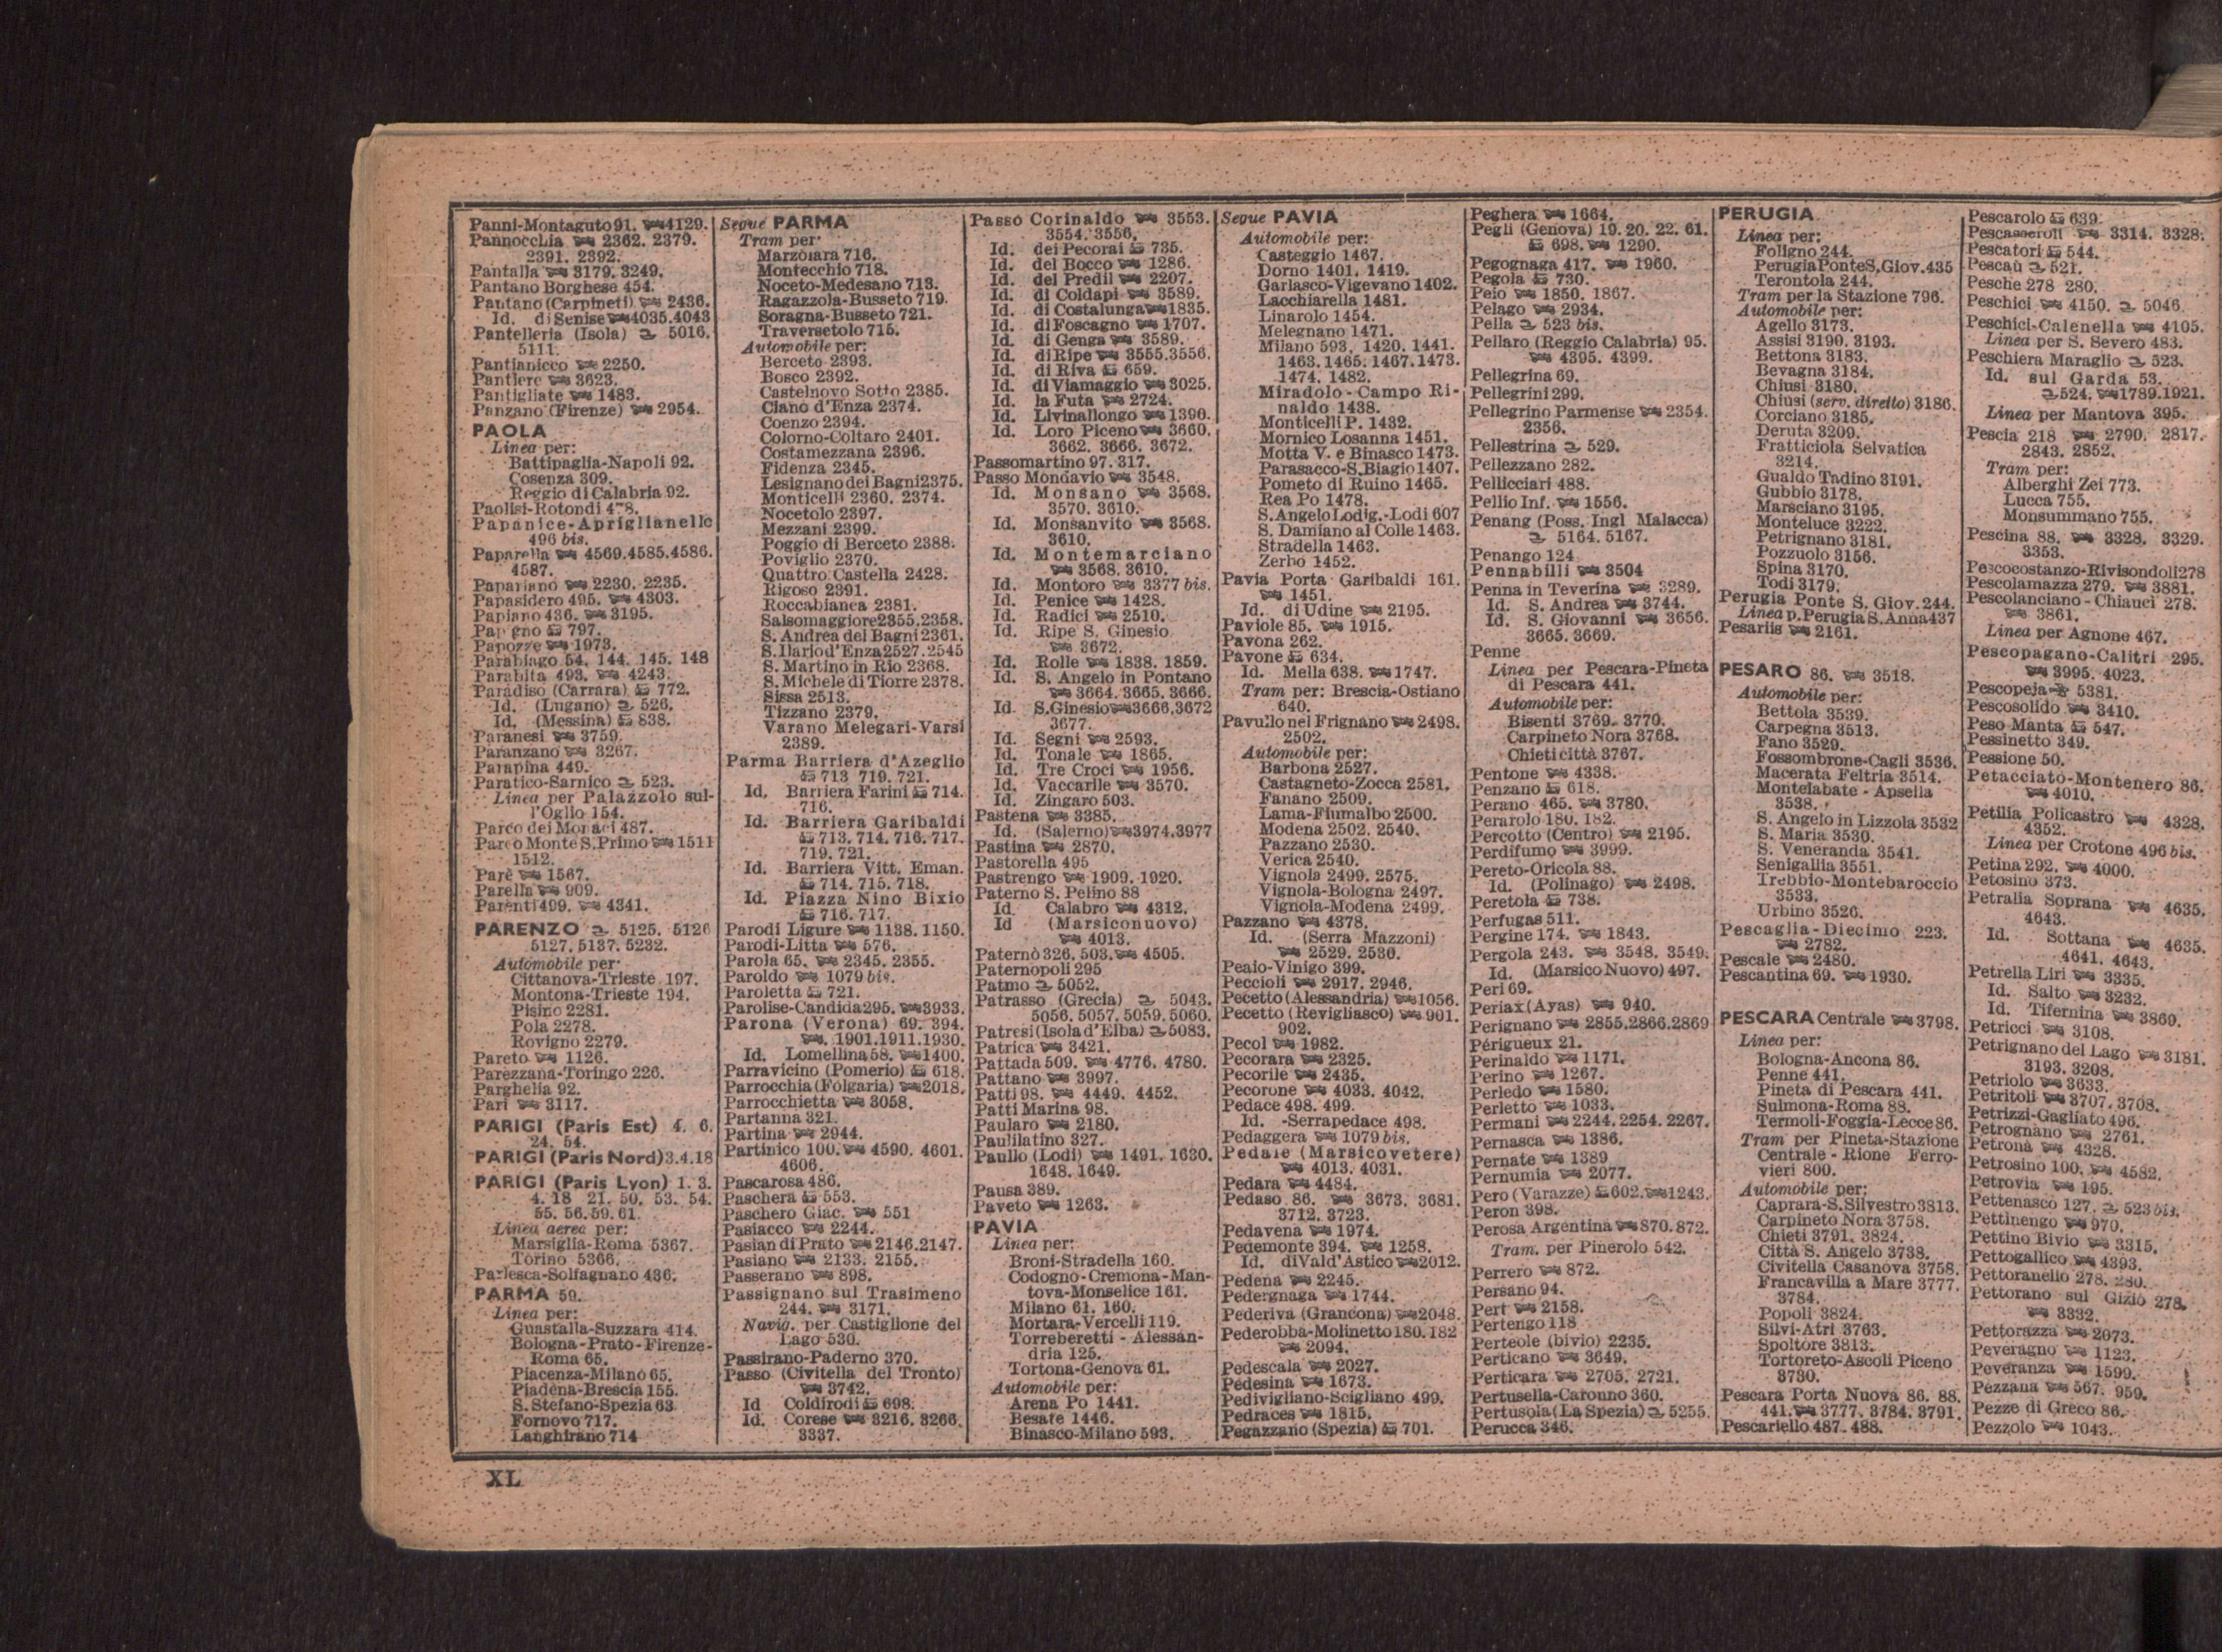 Panni-Montaguto 91. 4129.
Pannocchia 2362. 2379.
2391. 2392.
Pantalla 3179. 3249.
Pantano Borghese 454.
Pantano (Carpineti) 2436.
Id. di Senise 4035.4043
Pantelleria (Isola) 5016.
5111.
Pantianicco 2250.
Pantiere 3623.
Pantigliate 1483.
Panzano (Firenze) 2954.
PAOLA
Linea per:
Battipaglia-Napoli 92.
Cosenza 309.
Reggio di Calabria 92.
Paolisi-Rotondi 478.
Papanice-Apriglianello
496 bis.
Paparella 4569.4585.4586.
4587.
Papariano 2230. 2235.
Papasidero 495. 4303.
Papiano 436. 3195.
Papigno 797.
Papozze 1973.
Parabiago 54. 144. 145. 148
Parabita 493. 4243.
Paradiso (Carrara) 772.
Id. (Lugano) 526.
Id. (Messina) 838.
Paranesi 3759.
Paranzano 3267.
Parapina 449.
Paratico-Sarnico 523.
Linea per Palazzolo sul-
l'Oglio 154.
Parco dei Monaci 487.
Parco Monte S. Primo 1511
1512.
Parè 1567.
Parella 909.
Parenti 499. 4341.
PARENZO 5125. 5126
5127. 5137. 5232.
Automobile per:
Cittanova-Trieste 197.
Montona-Trieste 194.
Pisino 2281.
Pola 2278.
Rovigno 2279.
Pareto 1126.
Parezzana-Toringo 226.
Parghelia 92.
Pari 3117.
PARIGI (Paris Est) 4. 6.
24. 54.
PARIGI (Paris Nord) 3.4.18
PARIGI (Paris Lyon) 1. 3.
4. 18 21. 50. 53. 54.
55. 56. 59. 61.
Linea aerea per:
Marsiglia-Roma 5367.
Torino 5366.
Parlesca-Solfagnano 436.
PARMA 59.
Linea per:
Guastalla-Suzzara 414.
Bologna-Prato-Firenze-
Roma 65.
Piacenza-Milano 65.
Piadena-Brescia 155.
S. Stefano-Spezia 63
Fornovo 717.
Langhirano 714
Segue PARMA
Tram per:
Marzolara 716.
Montecchio 718.
Noceto-Medesano 713.
Ragazzola-Busseto 719.
Soragna-Busseto 721.
Traversetolo 715.
Automobile per:
Berceto 2393.
Bosco 2392.
Castelnovo Sotto 2385.
Ciano d'Enza 2374.
Coenzo 2394.
Colorno-Coltaro 2401.
Costamezzana 2396.
Fidenza 2345.
Lesignano dei Bagni 2375.
Monticelli 2360. 2374.
Nocetolo 2397.
Mezzani 2399.
Poggio di Berceto 2388.
Poviglio 2370.
Quattro Castella 2428.
Rigoso 2391.
Roccabianca 2381.
Salsomaggiore 2355.2358.
S. Andrea dei Bagni 2361.
S. Ilario d'Enza 2527.2545
S. Martino in Rio 2368.
S. Michele di Tiorre 2378.
Sissa 2513.
Tizzano 2379.
Varano Melegari-Varsi
2389.
Parma Barriera d'Azeglio
713 719. 721.
Id. Barriera Farini 714.
716.
Id. Barriera Garibaldi
713. 714. 716. 717.
719. 721.
Id. Barriera Vitt. Eman.
714. 715. 718.
Id. Piazza Nino Bixio
716. 717.
Parodi Ligure 1138. 1150.
Parodi-Litta 576.
Parola 65. 2345. 2355.
Paroldo 1079 bis.
Paroletta 721.
Parolise-Candida 295. 3933.
Parona (Verona) 69. 394.
1901.1911.1930.
Id. Lomellina 58. 1400.
Parravicino (Pomerio) 618.
Parrocchia (Folgaria) 2018.
Parrocchietta 3058.
Partanna 321.
Partina 2944.
Partinico 100. 4590. 4601.
4606.
Pascarosa 486.
Paschera 553.
Paschero Giac. 551
Pasiacco 2244.
Pasian di Prato 2146.2147.
Pasiano 2133. 2155.
Passerano 898.
Passignano sul Trasimeno
244. 3171.
Navig. per Castiglione del
Lago 530.
Passirano-Paderno 370.
Passo (Civitella del Tronto)
3742.
Id Coldirodi 698.
Id. Corese 3216. 3266.
3337.
Passo Corinaldo 3553.
3554. 3556.
Id. dei Pecorai 735.
Id. del Bocco 1286.
Id. del Predil 2207.
Id. di Coldapi 3589.
Id. di Costalunga 1835.
Id. di Foscagno 1707.
Id. di Genga 3589.
Id. di Ripe 3555.3556.
Id. di Riva 659.
Id. di Viamaggio 3025.
Id. la Futa 2724.
Id. Livinallongo 1390.
Id. Loro Piceno 3660.
3662. 3666. 3672.
Passomartino 97. 317.
Passo Mondavio 3548.
Id. Monsano 3568.
3570. 3610.
Id. Monsanvito 3568.
3610.
Id. Montemarciano
3568. 3610.
Id. Montoro 3377 bis.
Id. Penice 1428.
Id. Radici 2510.
Id. Ripe S. Ginesio
3672.
Id. Rolle 1838. 1859.
Id. S. Angelo in Pontano
3664. 3665. 3666.
Id. S. Ginesio 3666.3672
3677.
Id. Segni 2593.
Id. Tonale 1865.
Id. Tre Croci 1956.
Id. Vaccarile 3570.
Id. Zingaro 503.
Pastena 3385.
Id. (Salerno) 3974.3977
Pastina 2870.
Pastorella 495
Pastrengo 1909. 1920.
Paterno S. Pelino 88
Id Calabro 4312.
Id (Marsiconuovo)
4013.
Paternò 326. 503. 4505.
Paternopoli 295
Patmo 5052.
Patrasso (Grecia) 5043.
5056. 5057. 5059. 5060.
Patresi (Isola d'Elba) 5083.
Patrica 3421.
Pattada 509. 4776. 4780.
Pattano 3997.
Patti 98. 4449. 4452.
Patti Marina 98.
Paularo 2180.
Paulilatino 327.
Paullo (Lodi) 1491. 1630.
1648. 1649.
Pausa 389.
Paveto 1263.
PAVIA
Linea per:
Broni-Stradella 160.
Codogno-Cremona-Man-
tova-Monselice 161.
Milano 61. 160.
Mortara-Vercelli 119.
Torreberetti - Alessan-
dria 125.
Tortona-Genova 61.
Automobile per:
Arena Po 1441.
Besate 1446.
Binasco-Milano 593.
Segue PAVIA
Automobile per:
Casteggio 1467.
Dorno 1401. 1419.
Garlasco-Vigevano 1402.
Lacchiarella 1481.
Linarolo 1454.
Melegnano 1471.
Milano 593. 1420. 1441.
1463. 1465. 1467. 1473.
1474. 1482.
Miradolo - Campo Ri-
naldo 1438.
Monticelli P. 1432.
Mornico Losanna 1451.
Motta V. e Binasco 1473.
Parasacco-S. Biagio 1407.
Pometo di Ruino 1465.
Rea Po 1478.
S. Angelo Lodig.-Lodi 607
S. Damiano al Colle 1463.
Stradella 1463.
Zerbo 1452.
Pavia Porta Garibaldi 161.
1451.
Id. di Udine 2195.
Paviole 85. 1915.
Pavona 262.
Pavone 634.
Id. Mella 638. 1747.
Tram per: Brescia-Ostiano
640.
Pavullo nel Frignano 2498.
2502.
Automobile per:
Barbona 2527.
Castagneto-Zocca 2581.
Fanano 2509.
Lama-Fiumalbo 2500.
Modena 2502. 2540.
Pazzano 2530.
Verica 2540.
Vignola 2499. 2575.
Vignola-Bologna 2497.
Vignola-Modena 2499.
Pazzano 4378.
Id. (Serra Mazzoni)
2529. 2530.
Peaio-Vinigo 399.
Peccioli 2917. 2946.
Pecetto (Alessandria) 1056.
Pecetto (Revigliasco) 901.
902.
Pecol 1982.
Pecorara 2325.
Pecorile 2435.
Pecorone 4033. 4042.
Pedace 498. 499.
Id. -Serrapedace 498.
Pedaggera 1079 bis.
Pedale (Marsicovetere)
4013. 4031.
Pedara 4484.
Pedaso 86. 3673. 3681.
3712. 3723.
Pedavena 1974.
Pedemonte 394. 1258.
Id. di Vald'Astico 2012.
Pedena 2245.
Pedergnaga 1744.
Pederiva (Grancona) 2048.
Pederobba-Molinetto 180. 182
2094.
Pedescala 2027.
Pedesina 1673.
Pedivigliano-Scigliano 499.
Pedraces 1815.
Pegazzano (Spezia) 701.
Peghera 1664.
Pegli (Genova) 19. 20. 22. 61.
698. 1290.
Pegognaga 417. 1960.
Pegola 730.
Peio 1850. 1867.
Pelago 2934.
Pella 523 bis.
Pellaro (Reggio Calabria) 95.
4395. 4399.
Pellegrina 69.
Pellegrini 299.
Pellegrino Parmense 2354.
2356.
Pellestrina 529.
Pellezzano 282.
Pellicciari 488.
Pellio Inf. 1556.
Penang (Poss. Ingl Malacca)
5164. 5167.
Penango 124
Pennabilli 3504
Penna in Teverina 3289.
Id. S. Andrea 3744.
Id. S. Giovanni 3656.
3665. 3669.
Penne
Linea per Pescara-Pineta
di Pescara 441.
Automobile per:
Bisenti 3769. 3770.
Carpineto Nora 3768.
Chieti città 3767.
Pentone 4338.
Penzano 618.
Perano 465. 3780.
Perarolo 180. 182.
Percotto (Centro) 2195.
Perdifumo 3999.
Pereto-Oricola 88.
Id. (Polinago) 2498.
Peretola 738.
Perfugas 511.
Pergine 174. 1843.
Pergola 243. 3548. 3549.
Id. (Marsico Nuovo) 497.
Peri 69.
Periax (Ayas) 940.
Perignano 2855.2866.2869
Périgueux 21.
Perinaldo 1171.
Perino 1267.
Perledo 1580.
Perletto 1033.
Permani 2244. 2254. 2267.
Pernasca 1386.
Pernate 1389
Pernumia 2077.
Pero (Varazze) 602. 1243.
Peron 398.
Perosa Argentina 870. 872.
Tram. per Pinerolo 542.
Perrero 872.
Persano 94.
Pert 2158.
Pertengo 118
Perteole (bivio) 2235.
Perticano 3649.
Perticara 2705. 2721.
Pertusella-Caronno 360.
Pertusola (La Spezia) 5255.
Perucca 346.
PERUGIA
Linea per:
Foligno 244.
Perugia Ponte S. Giov. 435
Terontola 244.
Tram per la Stazione 796.
Automobile per:
Agello 3173.
Assisi 3190. 3193.
Bettona 3183.
Bevagna 3184.
Chiusi 3180.
Chiusi (serv. diretto) 3186.
Corciano 3185.
Deruta 3209.
Fratticiola Selvatica
3214.
Gualdo Tadino 3191.
Gubbio 3178.
Marsciano 3195.
Monteluce 3222.
Petrignano 3181.
Pozzuolo 3156.
Spina 3170.
Todi 3179.
Perugia Ponte S. Giov. 244.
Linea p. Perugia S. Anna 437
Pesariis 2161.
PESARO 86. 3518.
Automobile per:
Bettola 3539.
Carpegna 3513.
Fano 3529.
Fossombrone-Cagli 3536.
Macerata Feltria 3514.
Montelabate - Apsella
3538.
S. Angelo in Lizzola 3532
S. Maria 3530.
S. Veneranda 3541.
Senigallia 3551.
Trebbio-Montebaroccio
3533.
Urbino 3526.
Pescaglia-Diecimo 223.
2782.
Pescale 2480.
Pescantina 69. 1930.
PESCARA Centrale 3798.
Linea per:
Bologna-Ancona 86.
Penne 441.
Pineta di Pescara 441.
Sulmona-Roma 88.
Termoli-Foggia-Lecce 86.
Tram per Pineta-Stazione
Centrale - Rione Ferro-
vieri 800.
Automobile per:
Caprara-S. Silvestro 3813.
Carpineto Nora 3758.
Chieti 3791. 3824.
Città S. Angelo 3738.
Civitella Casanova 3758.
Francavilla a Mare 3777.
3784.
Popoli 3824.
Silvi-Atri 3763.
Spoltore 3813.
Tortoreto-Ascoli Piceno
3730.
Pescara Porta Nuova 86. 88.
441. 3777. 3784. 3791.
Pescariello 487. 488.
Pescarolo 639.
Pescasseroli 3314. 3328.
Pescatori 544.
Pescaù 521.
Pesche 278 280.
Peschici 4150. 5046.
Peschici-Calenella 4105.
Linea per S. Severo 483.
Peschiera Maraglio 523.
Id. sul Garda 53.
524. 1789.1921.
Linea per Mantova 395.
Pescia 218 2790. 2817.
2843. 2852.
Tram per:
Alberghi Zei 773.
Lucca 755.
Monsummano 755.
Pescina 88. 3328. 3329.
3353.
Pescocostanzo-Rivisondoli 278
Pescolamazza 279. 3881.
Pescolanciano - Chiauci 278.
3861.
Linea per Agnone 467.
Pescopagano-Calitri 295.
3995. 4023.
Pescopeja 5381.
Pescosolido 3410.
Peso Manta 547.
Pessinetto 349.
Pessione 50.
Petacciato-Montenero 86.
4010.
Petilia Policastro 4328.
4352.
Linea per Crotone 496 bis.
Petina 292. 4000.
Petosino 373.
Petralia Soprana 4635.
4643.
Id. Sottana 4635.
4641. 4643.
Petrella Liri 3335.
Id. Salto 3232.
Id. Tifernina 3860.
Petricci 3108.
Petrignano del Lago 3181.
3193. 3208.
Petriolo 3633.
Petritoli 3707. 3708.
Petrizzi-Gagliato 496.
Petrognano 2761.
Petronà 4328.
Petrosino 100. 4582.
Petrovia 195.
Pettenasco 127. 523 bis.
Pettinengo 970.
Pettino Bivio 3315.
Pettogallico 4393.
Pettoranello 278. 280.
Pettorano sul Gizio 278.
3332.
Pettorazza 2073.
Peveragno 1123.
Peveranza 1599.
Pezzana 567. 959.
Pezze di Greco 86.
Pezzolo 1043.
XL